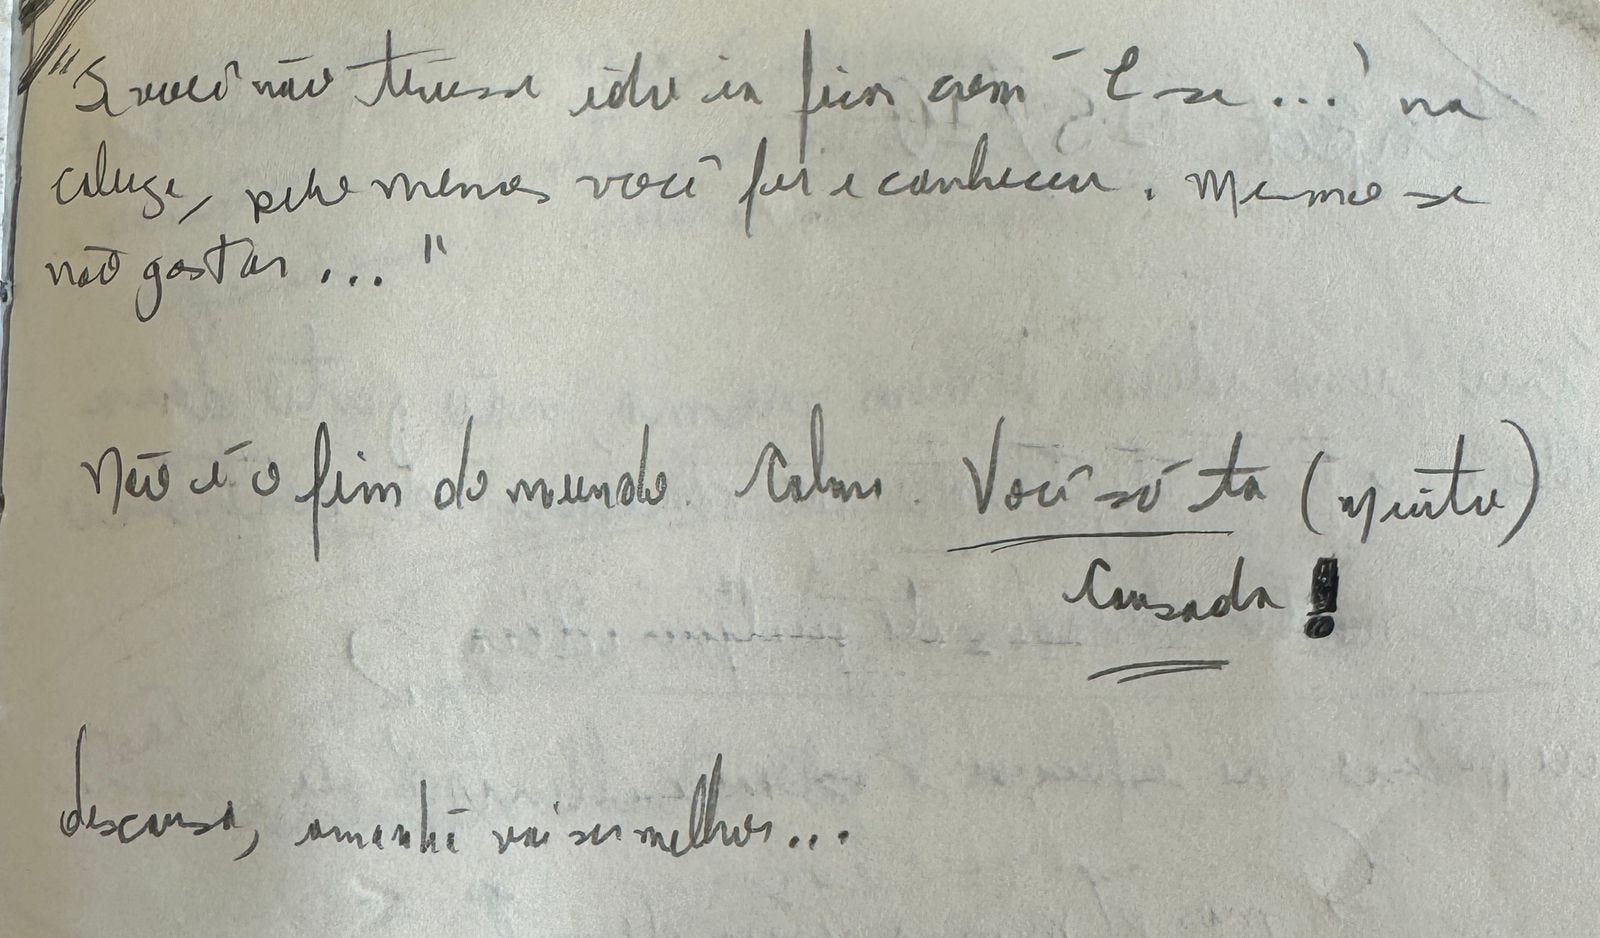 "Se você não tivesse ido ia ficar com 'E se...' na
cabeça, pelo menos você foi e conheceu. Mesmo se
não gostar..."
Não é o fim do mundo. Calma. Você só ta (muito)
cansada!
descansa, amanhã vai ser melhor...